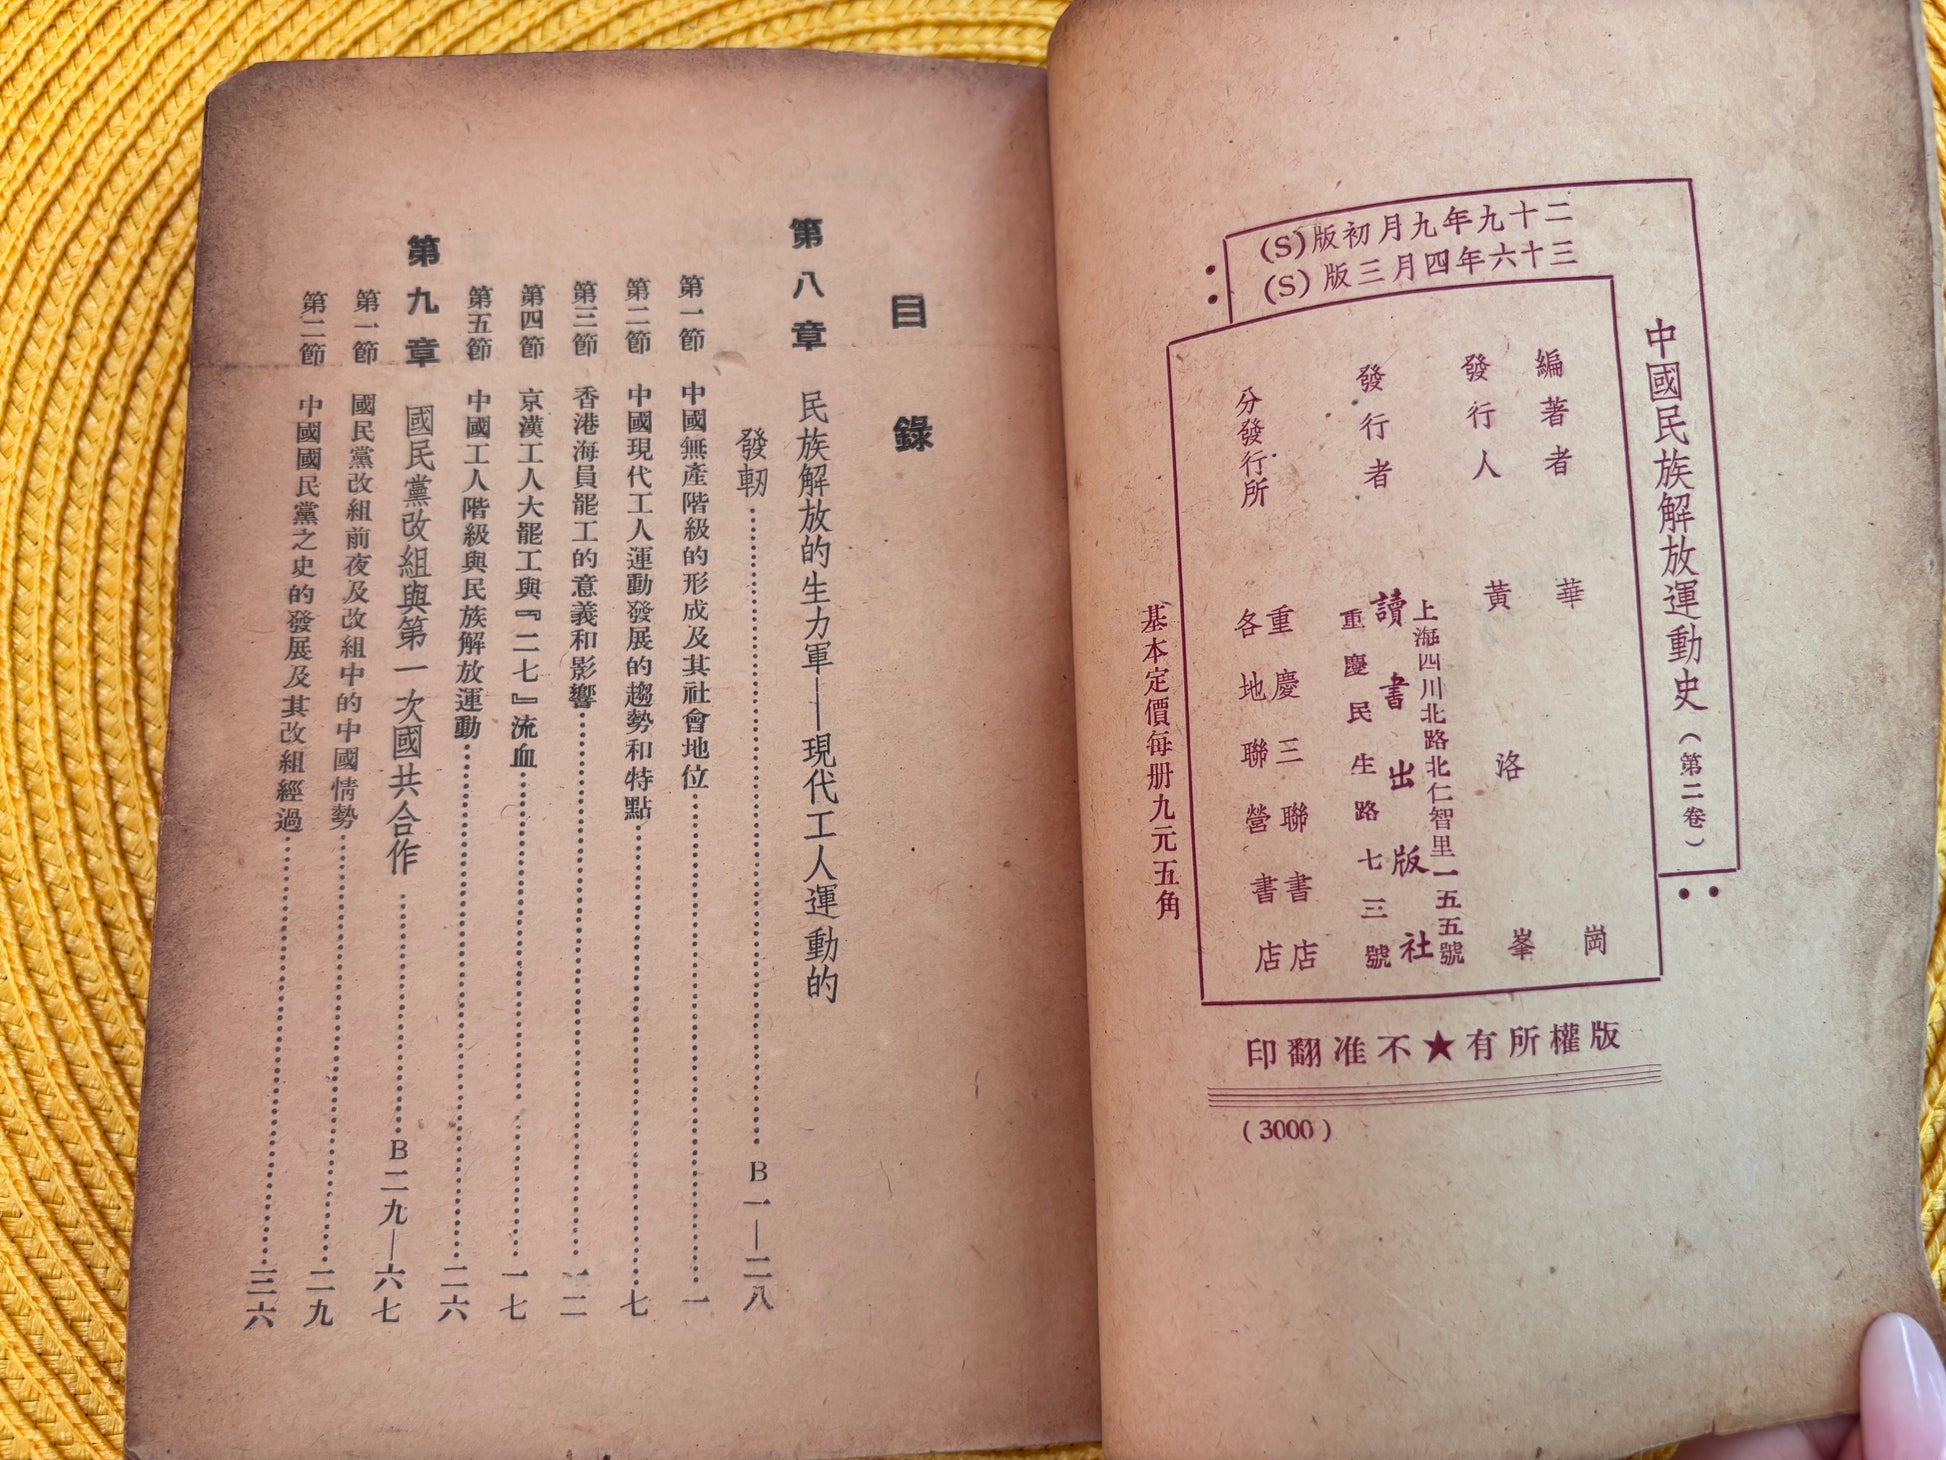 二十九年九月初版(S)
三十六年四月三版(S)
中國民族解放運動史(第二卷)
編著者 華崗
發行人 黃洛峯
發行者 讀書出版社
上海四川北路北仁智里一五五號
重慶民生路七三號
分發行所 重慶三聯書店
各地聯營書店
基本定價每册九元五角
版權所有★不准翻印
(3000)
目錄
第八章 民族解放的生力軍——現代工人運動的
發軔……B一—二八
第一節 中國無產階級的形成及其社會地位……一
第二節 中國現代工人運動發展的趨勢和特點……七
第三節 香港海員罷工的意義和影響……一二
第四節 京漢工人大罷工與『二七』流血……一七
第五節 中國工人階級與民族解放運動……二六
第九章 國民黨改組與第一次國共合作……B二九—六七
第一節 國民黨改組前夜及改組中的中國情勢……二九
第二節 中國國民黨之史的發展及其改組經過……三六